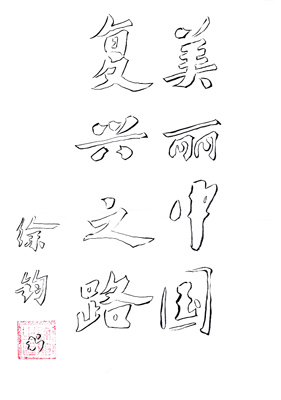 美丽中国
复兴之路
徐钧